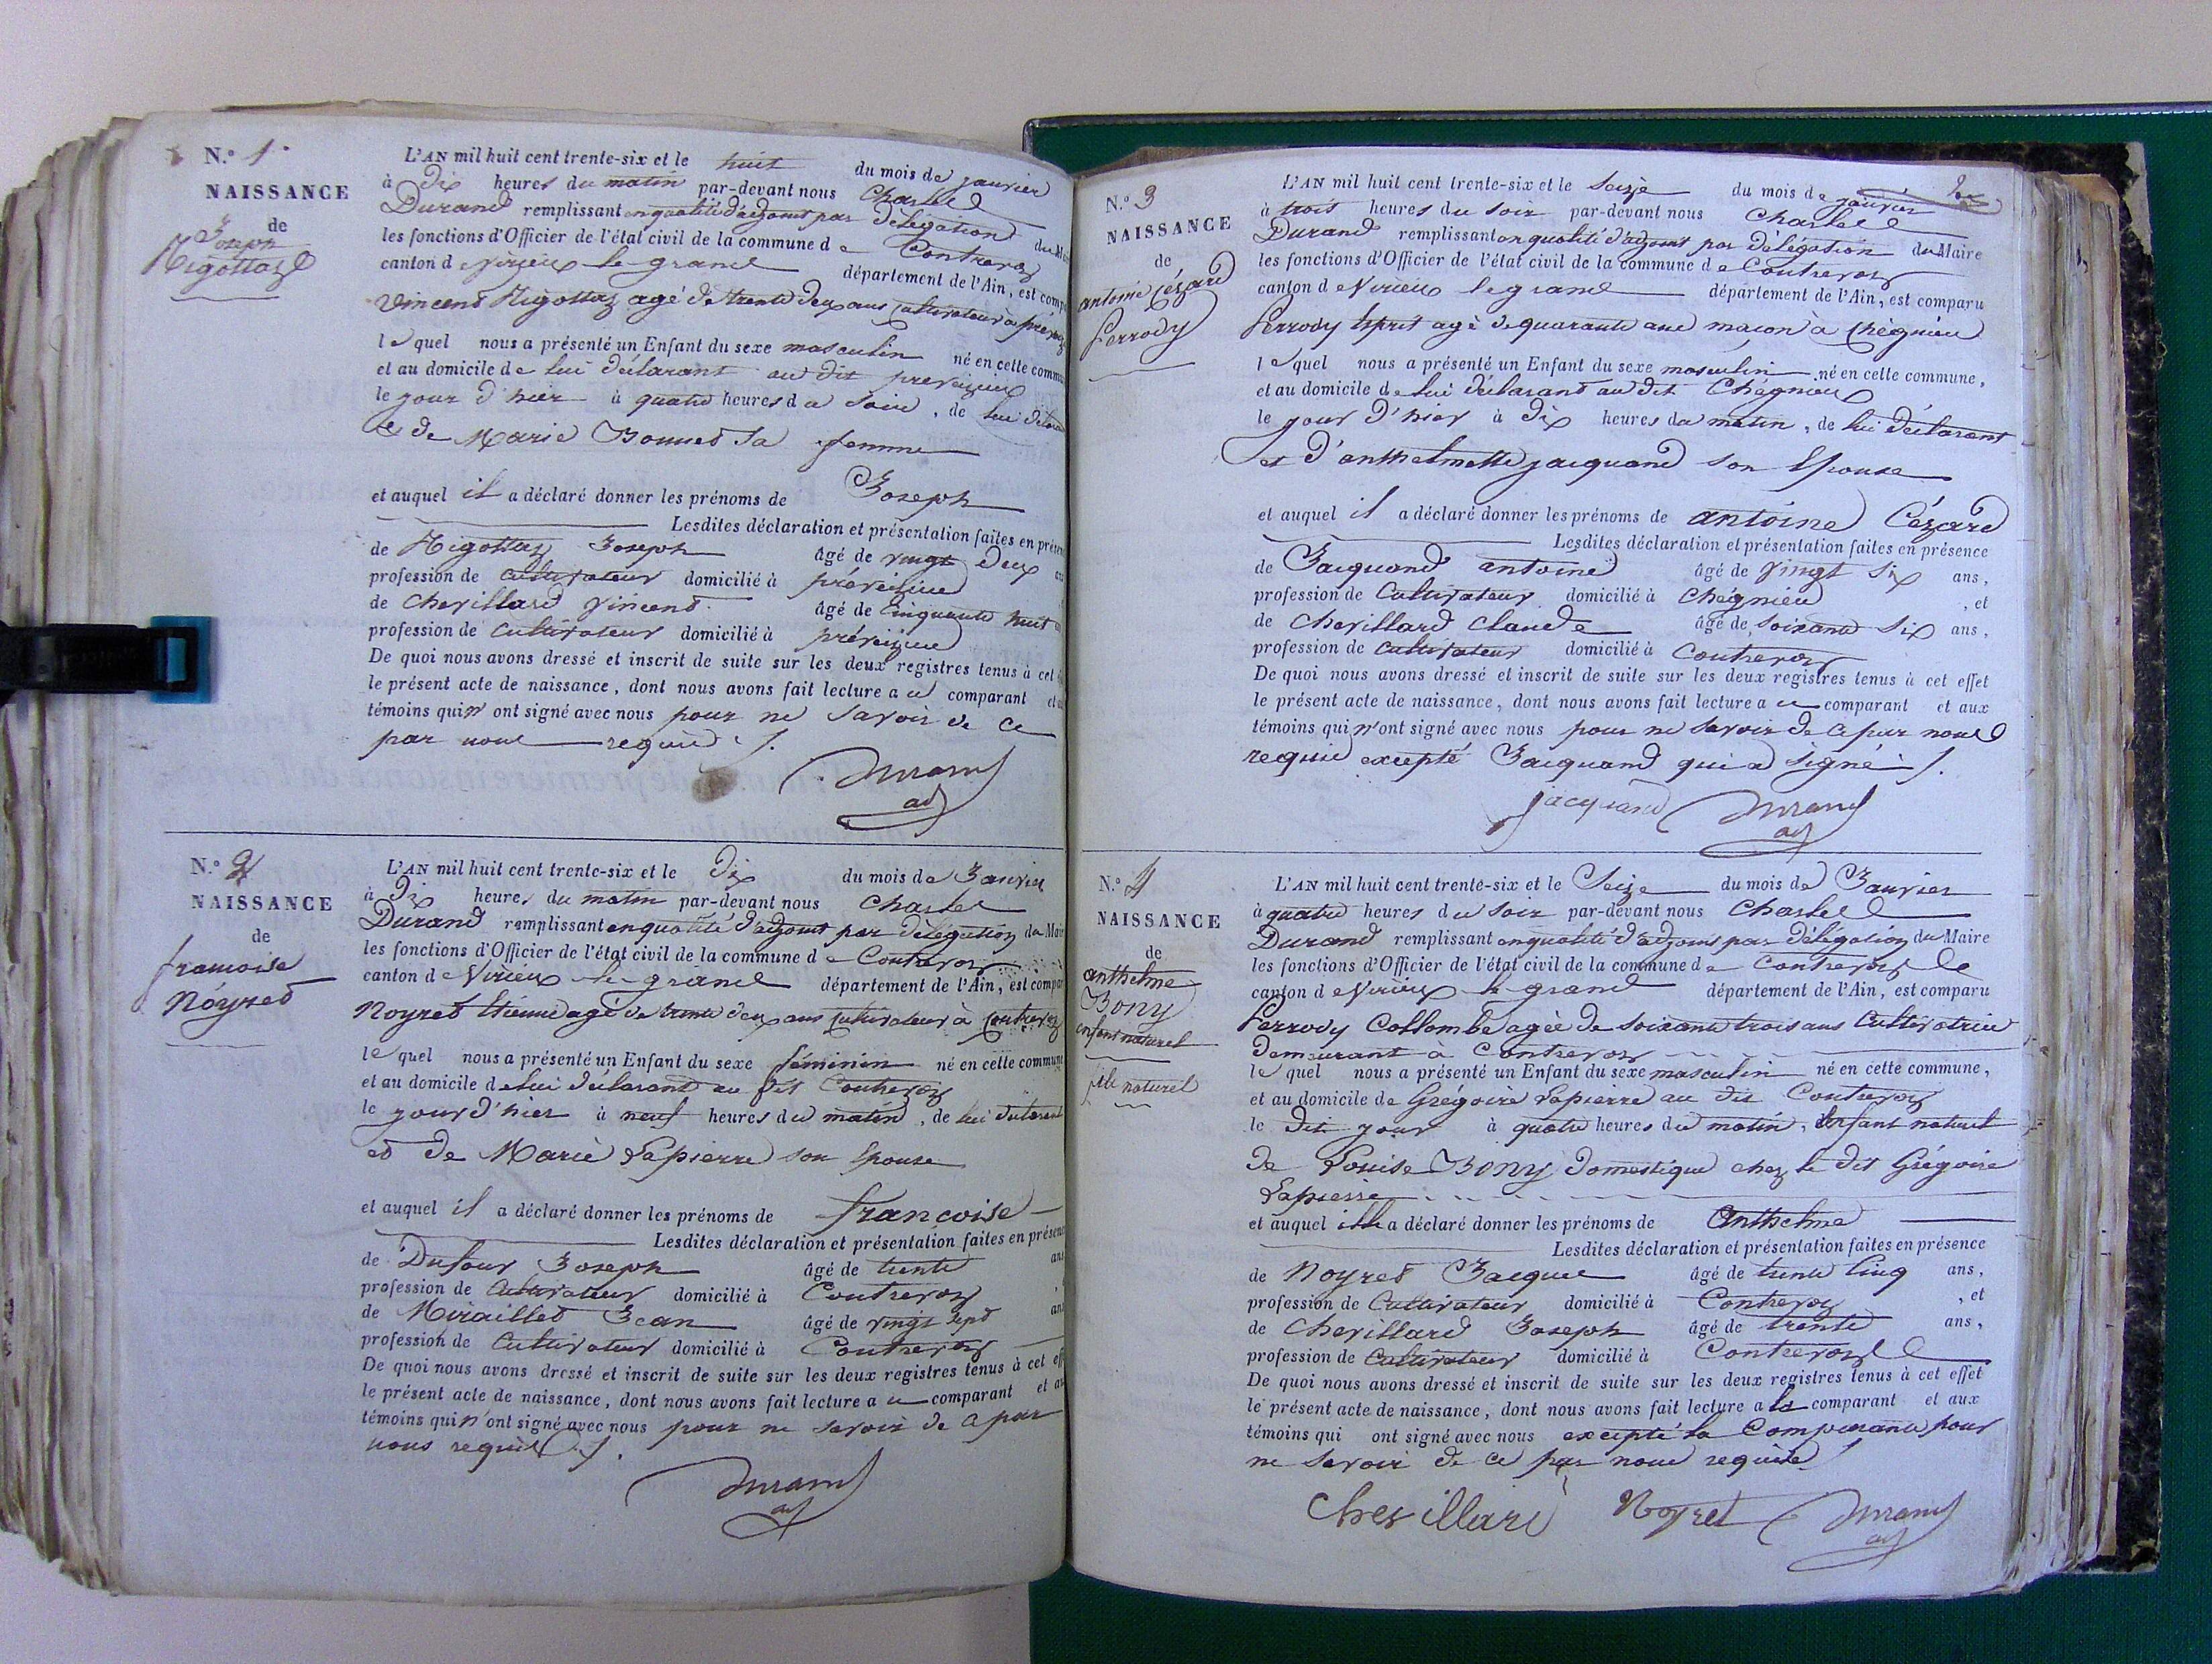 N.° 1
NAISSANCE
de
Joseph
Rigottaz
L'AN mil huit cent trente-six et le huit du mois de janvier
à dix heures du matin par-devant nous Charle
Durand remplissant en qualité d'adjoint par délégation du
les fonctions d'Officier de l'état civil de la commune de Contrevoz
canton de Virieux le grand département de l'Ain, est comp
Vincend Rigottaz agé de trente deux ans cultivateur à
le quel nous a présenté un Enfant du sexe masculin né en cette comm
et au domicile de lui déclarant au dit preveizieu
le jour d'hier à quatre heures du soir, de lui
et de Marie Bonned sa femme
et auquel il a déclaré donner les prénoms de Joseph
Lesdites déclaration et présentation faites en
de Rigottaz Joseph âgé de vingt deux
profession de cultivateur domicilié à préveizieu
de Chevillard Vincend âgé de Cinquante huit
profession de cultivateur domicilié à préveizieu
De quoi nous avons dressé et inscrit de suite sur les deux registres tenus à cet
le présent acte de naissance, dont nous avons fait lecture a ce comparant et
témoins qui n'ont signé avec nous pour ne savoir de ce
par nous requis ./.
Durand
adj
N.° 2
NAISSANCE
de
francoise
Noyred
L'AN mil huit cent trente-six et le dix du mois de Janvier
à dix heures du matin par-devant nous Charle
Durand remplissant en qualité d'adjoint par délégation du
les fonctions d'Officier de l'état civil de la commune de Contrevoz
canton de Virieux le grand département de l'Ain, est compar
Noyred Etienne agé de trente deux ans cultivateur à Contrevoz
le quel nous a présenté un Enfant du sexe féminin né en cette commune
et au domicile de lui déclarant au dit Contrevoz
le jour d'hier à neuf heures du matin, de lui déclarant
ed de Marie Lapierre son Epouse
et auquel il a déclaré donner les prénoms de francoise
Lesdites déclaration et présentation faites en présence
de Dufour Joseph âgé de trente ans
profession de cultivateur domicilié à Contrevoz
de Miraillet Jean âgé de vingt sept
profession de cultivateur domicilié à Contrevoz
De quoi nous avons dressé et inscrit de suite sur les deux registres tenus à cet
le présent acte de naissance, dont nous avons fait lecture a ce comparant et
témoins qui n'ont signé avec nous pour ne savoir de ce par
nous requis ./.
Durand
adj
N.° 3
NAISSANCE
de
antoine Cézard
Perrody
L'AN mil huit cent trente-six et le Seize du mois de janvier
à trois heures du soir par-devant nous Charle
Durand remplissant en qualité d'adjoint par délégation du Maire
les fonctions d'Officier de l'état civil de la commune de Contrevoz
canton de Virieux le grand département de l'Ain, est comparu
Perrody Esprit agé de quarante ans maçon à Chégnieu
le quel nous a présenté un Enfant du sexe masculin né en cette commune,
et au domicile de lui déclarand au dit Chégnieu
le jour d'hier à dix heures du matin, de lui déclarant
et d'anthelmette jacquand son Epouse
et auquel il a déclaré donner les prénoms de antoine Cézard
Lesdites déclaration et présentation faites en présence
de Jacquand antoine âgé de vingt six ans,
profession de Cultivateur domicilié à Chégnieu , et
de Chevillard Claude âgé de soixante six ans,
profession de cultivateur domicilié à Contrevoz
De quoi nous avons dressé et inscrit de suite sur les deux registres tenus à cet effet
le présent acte de naissance, dont nous avons fait lecture a ce comparant et aux
témoins qui n'ont signé avec nous pour ne savoir de ce par nous
requis excepté Jacquand qui a signé ./.
jacquand Durand
adj
N.° 4
NAISSANCE
de
anthelme
Bony
enfant naturel
fils naturel
L'AN mil huit cent trente-six et le Seize du mois de Janvier
à quatre heures du soir par-devant nous Charle
Durand remplissant en qualité d'adjoint par délégation du Maire
les fonctions d'Officier de l'état civil de la commune de Contrevoz
canton de Virieux le grand département de l'Ain, est comparu
Perrody Collombe agée de soixante trois ans Cultivatrice
demeurant à Contrevoz
le quel nous a présenté un Enfant du sexe masculin né en cette commune,
et au domicile de Grégoire Lapierre au dit Contrevoz
le dit jour à quatre heures du matin, Enfant naturel
de Louise Bony domestique chez le dit Grégoire
Lapierre
et auquel elle a déclaré donner les prénoms de Anthelme
Lesdites déclaration et présentation faites en présence
de Noyred Jacque âgé de trente Cinq ans,
profession de Cultivateur domicilié à Contrevoz , et
de Chevillard Joseph âgé de trente ans,
profession de Cultivateur domicilié à Contrevoz
De quoi nous avons dressé et inscrit de suite sur les deux registres tenus à cet effet
le présent acte de naissance, dont nous avons fait lecture a la comparant et aux
témoins qui ont signé avec nous excepté la Comparante pour
ne savoir de ce par nous requise
Chevillard Noyret Durand
adj